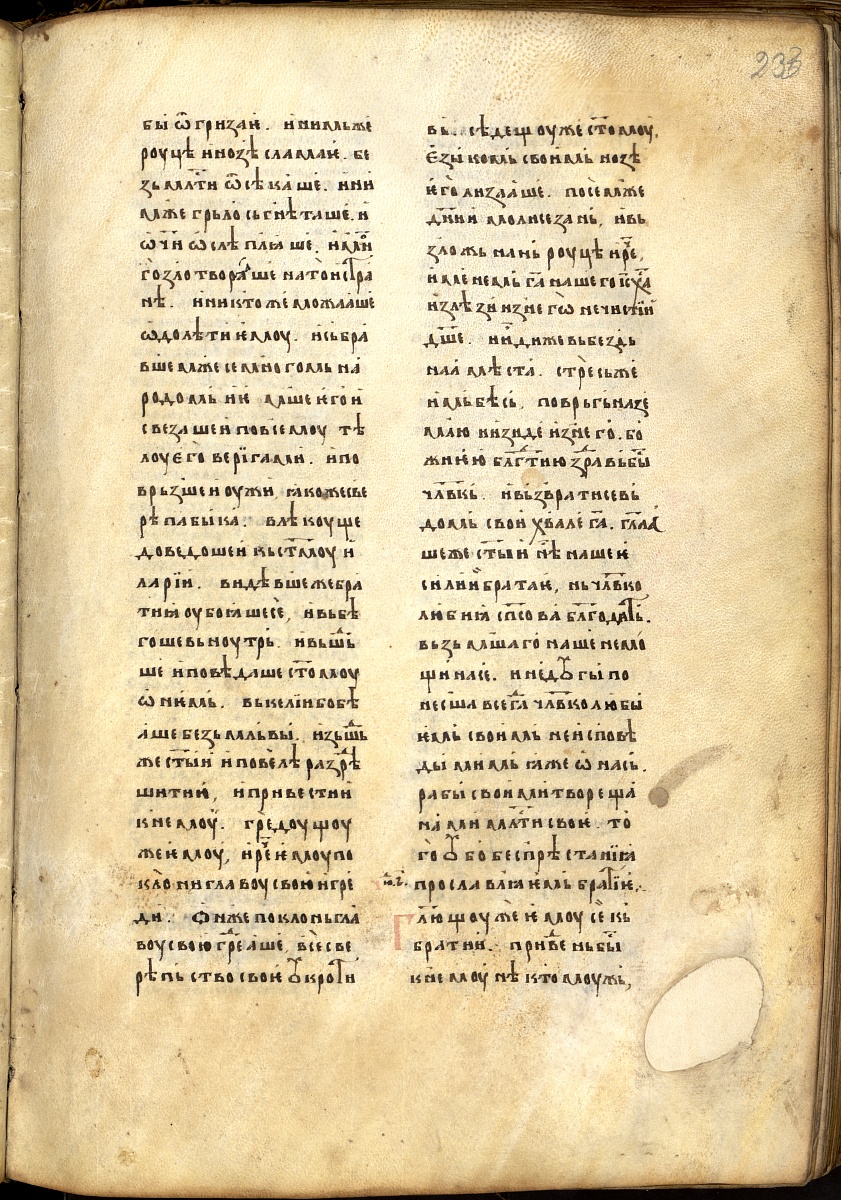 233
бы ѿгризаѥ. и нимьже
роуцѣ и нозѣ сламаѥ. бе
зь млⷭти ѿсѣкаше. ини
мже грьло сьгнѣташе. и
ѡчи ѡслѣплꙗше. и мн
го зло твораше на тои стра
нѣ. и никтоже можааше
ѡдолѣти ѥмоу. и сьбра
вше же се многомь на
родомь и ѥмше ѥго и
свезаше и по всемоу тѣ
лоу ѥго веригами. и по
врьзше и оужи, ꙗкоже све
рѣпа быка. влѣкоуще
доведоше и кь ст҃моу и
ларїи. видѣвше же бра
тиꙗ оубоꙗше се, и вьбѣ
гоше вьноутрь. и вьшⷣь
ше и повѣдаше ст҃омоу
ѡ нимь. вь келїи бо бѣ
аше безьмльвы. изьшⷣь
же ст҃ыи и повелѣ раздрѣ
шити и, и привести и
к нѥмоу. гредоущоу
же ѥмоу, и реⷱ ѥмоу по
клони главоу свою и гре
ди. Ѡн же поклонь гла
воу свою гредѣаше, все све
рѣпьство своѥ ꙋкроти
вь. сѣдещоу же ст҃омоу,
ѥзыкомь своимь нозѣ
ѥго лизааше. по семже
дн҃и моли се за нь, и вь
зложь на нь роуцѣ и реⷱ,
именемь га҃ нашего іс҃ х҃а
излѣзи из нѥго нечистїи
дш҃е. и иди же вь безⷣь
наа мѣста. стресь же
имь бѣсь, поврьгь на зе
млю и изиде из нѥго. бо
жиѥю блⷢ҇тию здравь бы
чл҃вкь. и вьзврати се вь
домь свои хвале га҃. гл҃аа
ше же ст҃ыи нѣ нашеѥ
сили братиѥ, нь чл҃вко
любиꙗ сп҃сова блⷢ҇годѣть.
вьзьмшаго наше немо
щи на се. и недꙋгы по
несша все га҃ чл҃вколюбы
ѥмь своимь неисповѣ
дымимь ꙗже ѡ нась.
рабы своими твореща
нами млⷭти своѥ. то
го ꙋбо беспрѣстаниꙗ
прославлꙗѥмь братїѥ.
Гл҃ющоу же ѥмоу се кь
братии. приведень бы
к нѥмоу нѣкто моужь,